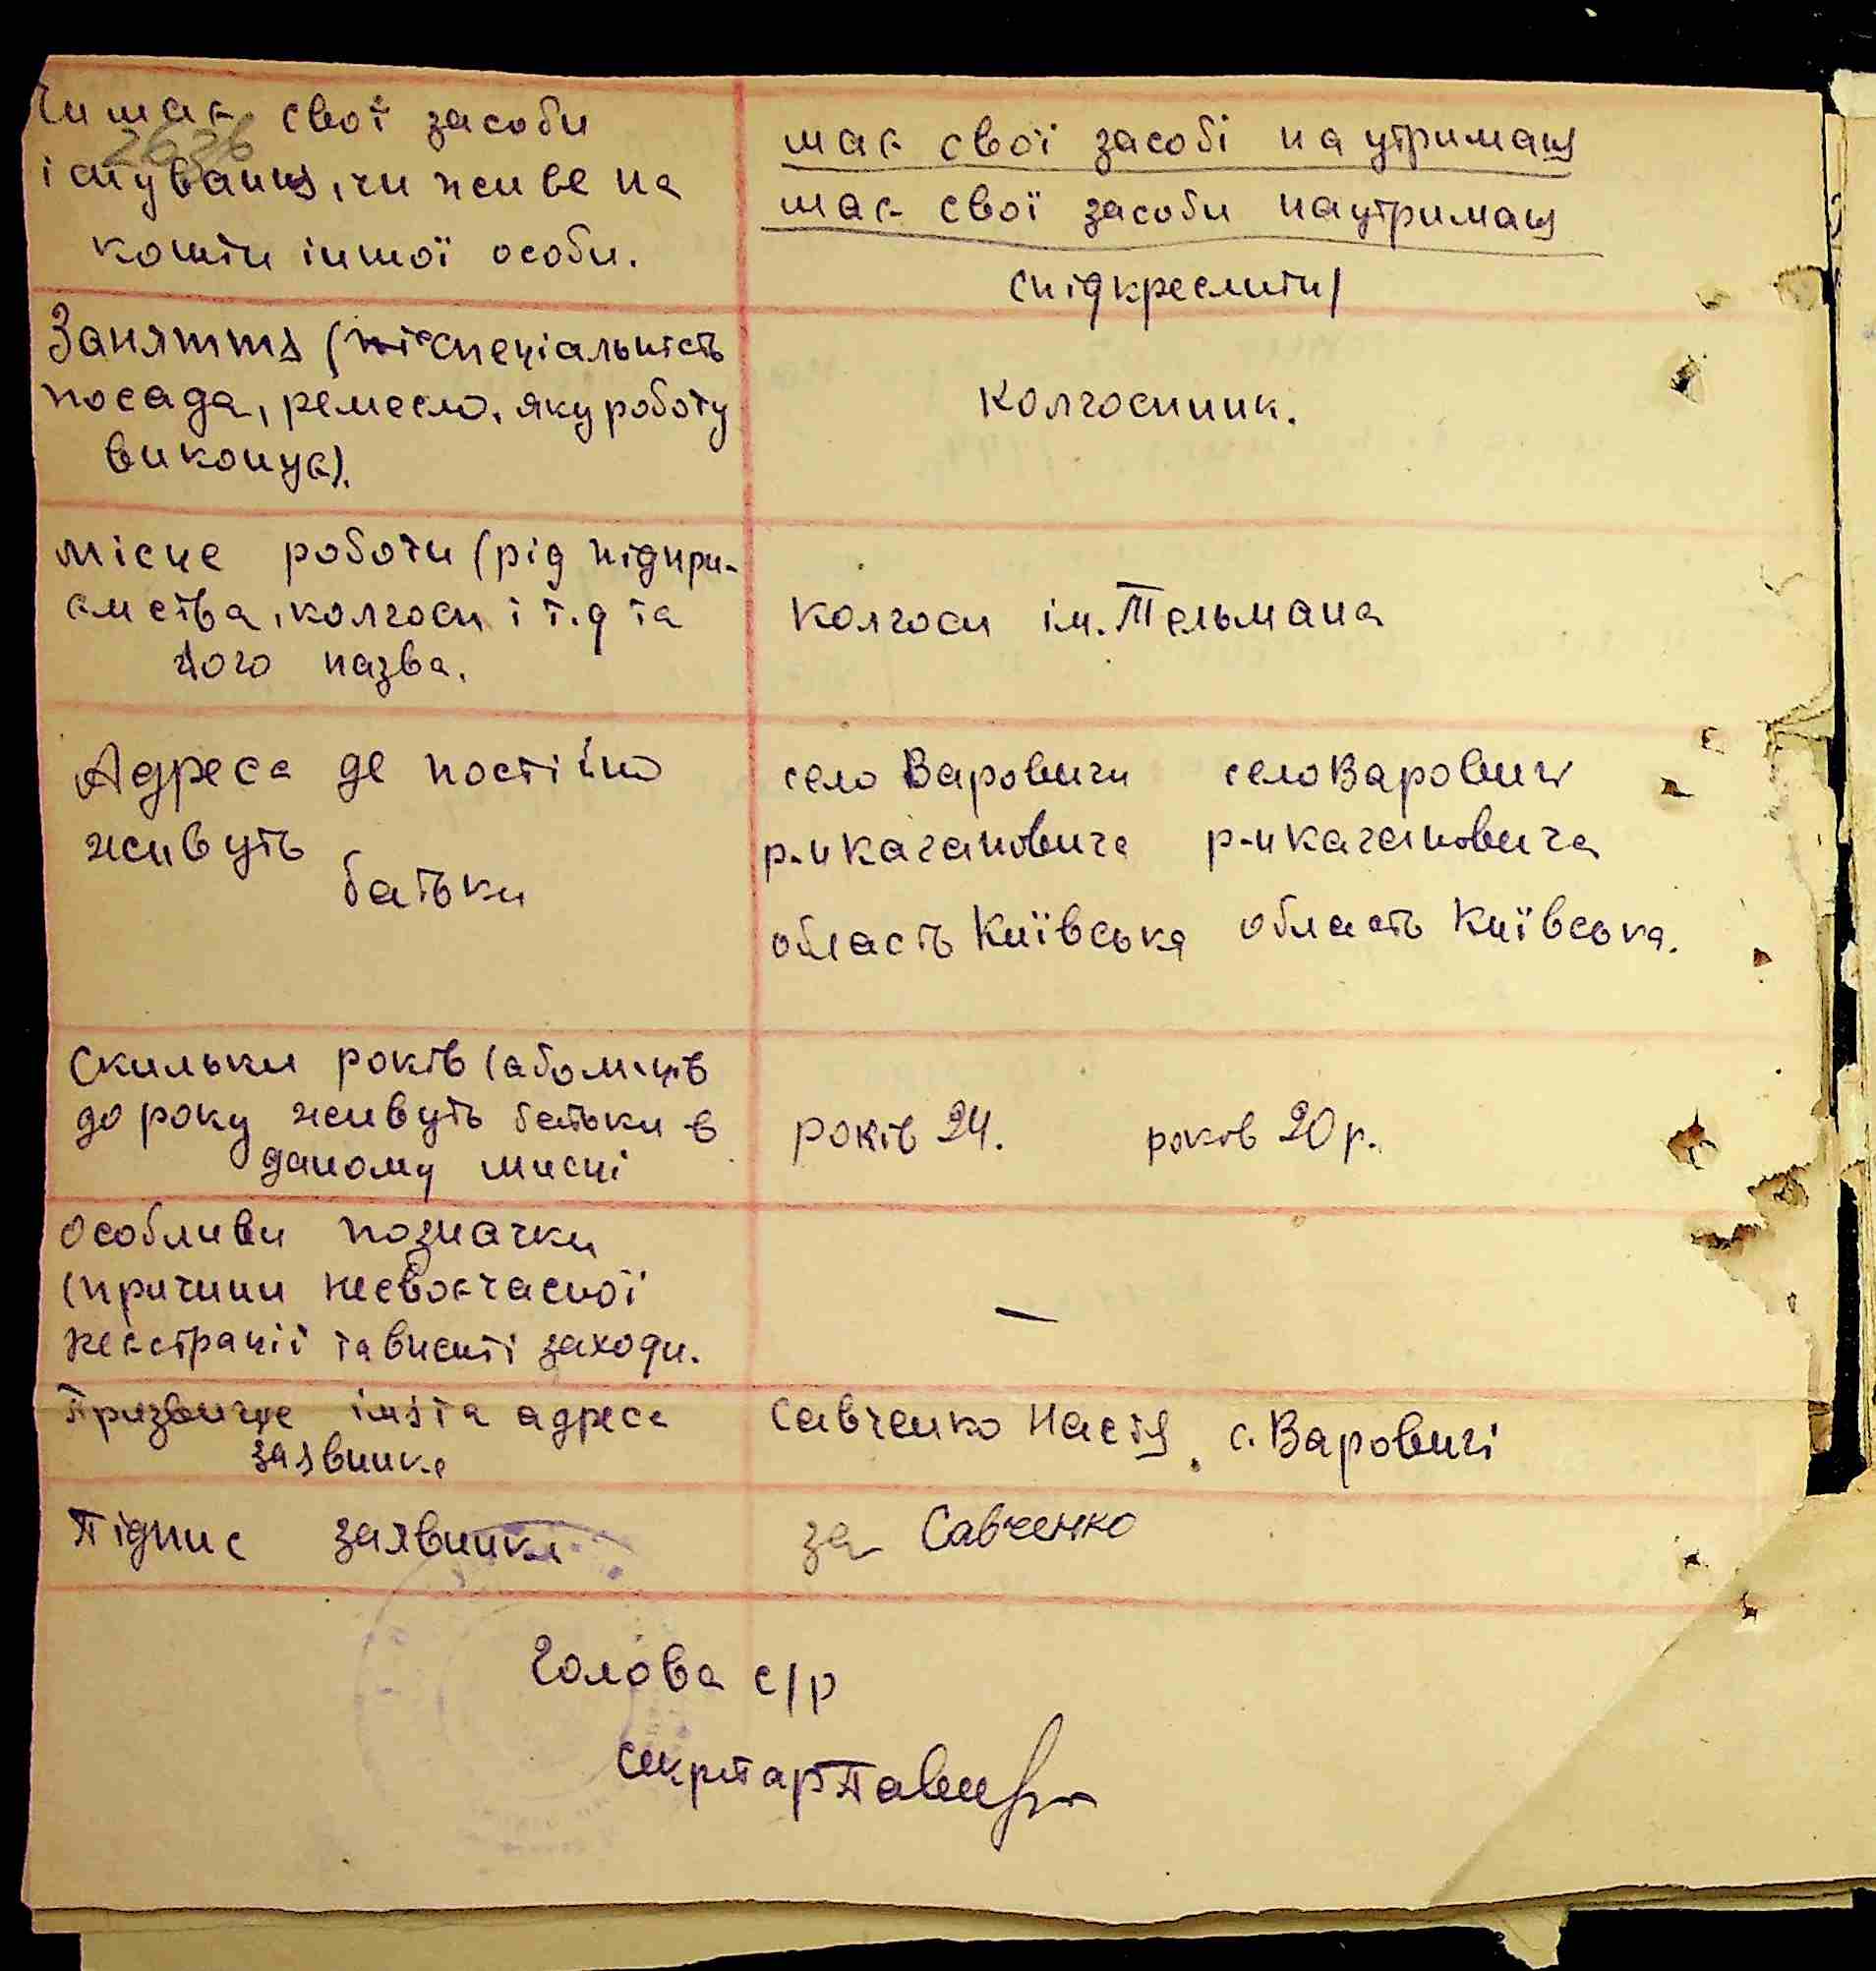 Чи має свої засоби
2636
існування, чи живе на
кошти іншої особи.
має свої засобі на утриман
має свої засоби наутриман
(підкреслити)
Заняття (спеціальність
посада, ремесло, яку роботу
виконує).
колгоспник.
місце роботи (рід підпри-
ємства, колгосп і т.д та
його назва.
колгосп ім. Тельмана
Адреса де постійно
живуть
батьки
село Варовичи село Варович
р-н Кагановича р-н Кагановича
область Київська область Київська.
Скильки років (або м-ців
до року живуть батьки в
даному мисці
років 24. років 20 р.
Особливи позначки
(причини несвоєчасної
реєстрації та вжиті заходи.
—
Призвище імя та адреса
заявника
Савченко Настя, с. Варовичі
Підпис заявника
за Савченко
Голова с/р
секретар